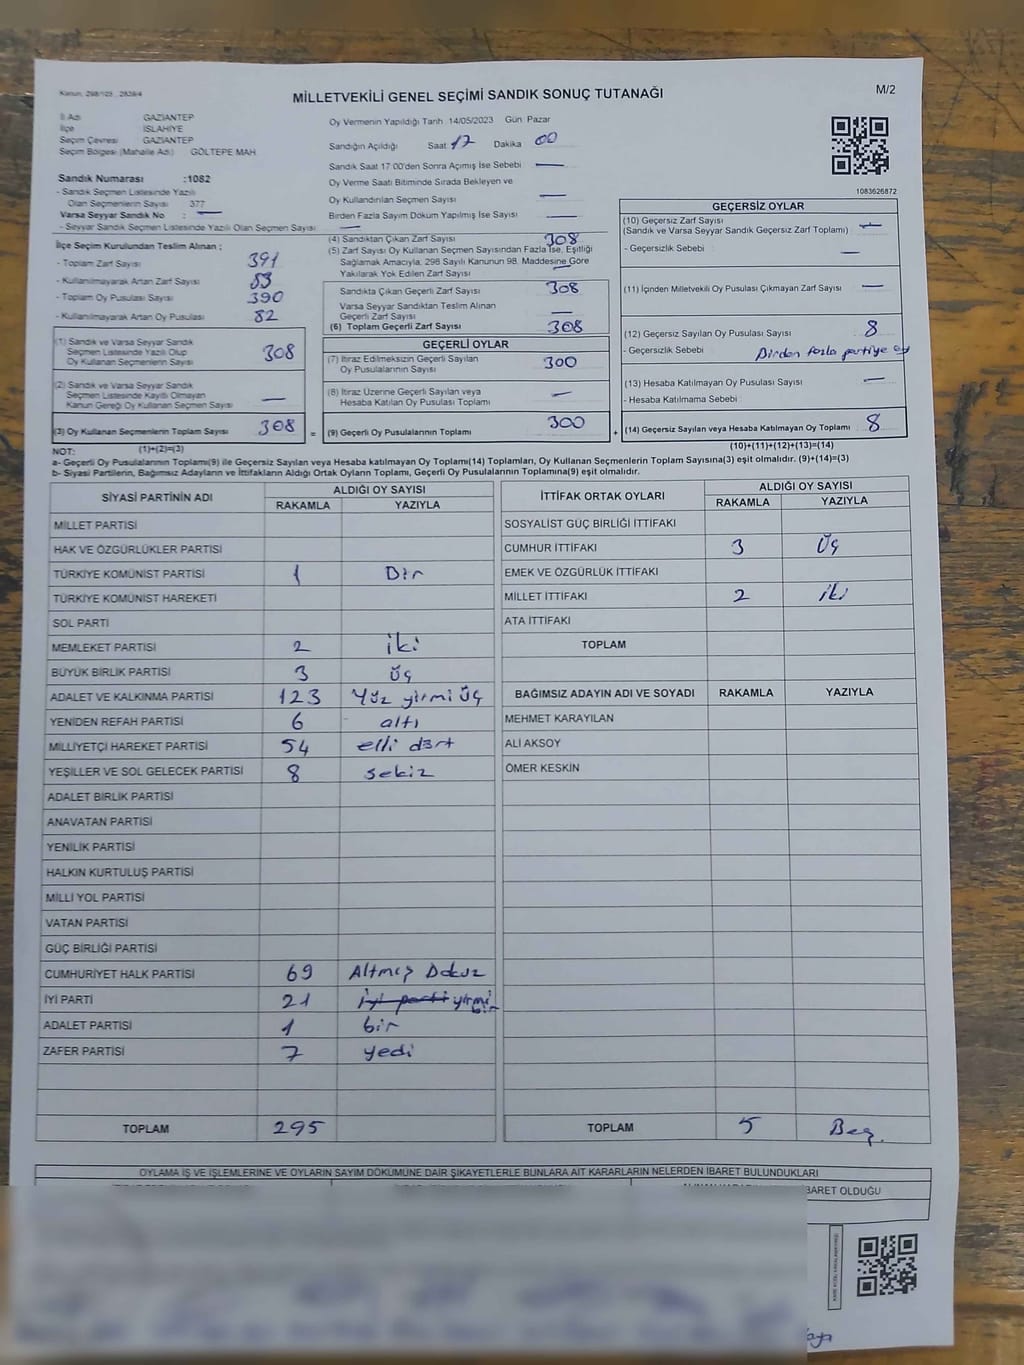 Kanun, 298/105 , 2839/4
MİLLETVEKİLİ GENEL SEÇİMİ SANDIK SONUÇ TUTANAĞI
M/2
İl Adı GAZİANTEP
İlçe İSLAHİYE
Seçim Çevresi GAZİANTEP
Seçim Bölgesi (Mahalle Adı) GÖLTEPE MAH
Sandık Numarası :1082
- Sandık Seçmen Listesinde Yazılı
Olan Seçmenlerin Sayısı 377
Varsa Seyyar Sandık No : —
- Seyyar Sandık Seçmen Listesinde Yazılı Olan Seçmen Sayısı —
Oy Vermenin Yapıldığı Tarih 14/05/2023 Gün Pazar
Sandığın Açıldığı Saat 17 Dakika 00
Sandık Saat 17.00'den Sonra Açımış İse Sebebi —
Oy Verme Saati Bitiminde Sırada Bekleyen ve
Oy Kullandırılan Seçmen Sayısı —
Birden Fazla Sayım Döküm Yapılmış İse Sayısı —
1083626872
İlçe Seçim Kurulundan Teslim Alınan ;
- Toplam Zarf Sayısı 391
- Kullanılmayarak Artan Zarf Sayısı 83
- Toplam Oy Pusulası Sayısı 390
- Kullanılmayarak Artan Oy Pusulası 82
(1) Sandık ve Varsa Seyyar Sandık
Seçmen Listesinde Yazılı Olup
Oy Kullanan Seçmenlerin Sayısı 308
(2) Sandık ve Varsa Seyyar Sandık
Seçmen Listesinde Kayıtlı Olmayan
Kanun Gereği Oy Kullanan Seçmen Sayısı —
(3) Oy Kullanan Seçmenlerin Toplam Sayısı 308
(1)+(2)=(3)
(4) Sandıktan Çıkan Zarf Sayısı 308
(5) Zarf Sayısı Oy Kullanan Seçmen Sayısından Fazla İse, Eşitliği
Sağlamak Amacıyla, 298 Sayılı Kanunun 98. Maddesine Göre
Yakılarak Yok Edilen Zarf Sayısı —
Sandıkta Çıkan Geçerli Zarf Sayısı 308
Varsa Seyyar Sandıktan Teslim Alınan
Geçerli Zarf Sayısı —
(6) Toplam Geçerli Zarf Sayısı 308
GEÇERLİ OYLAR
(7) İtiraz Edilmeksizin Geçerli Sayılan
Oy Pusulalarının Sayısı 300
(8) İtiraz Üzerine Geçerli Sayılan veya
Hesaba Katılan Oy Pusulası Toplamı —
= (9) Geçerli Oy Pusulalarının Toplamı 300
GEÇERSİZ OYLAR
(10) Geçersiz Zarf Sayısı
(Sandık ve Varsa Seyyar Sandık Geçersiz Zarf Toplamı) —
- Geçersizlik Sebebi —
(11) İçinden Milletvekili Oy Pusulası Çıkmayan Zarf Sayısı —
(12) Geçersiz Sayılan Oy Pusulası Sayısı 8
- Geçersizlik Sebebi Birden fazla partiye oy
(13) Hesaba Katılmayan Oy Pusulası Sayısı —
- Hesaba Katılmama Sebebi
+ (14) Geçersiz Sayılan veya Hesaba Katılmayan Oy Toplamı 8
(10)+(11)+(12)+(13)=(14)
NOT:
a- Geçerli Oy Pusulalarının Toplamı(9) ile Geçersiz Sayılan veya Hesaba katılmayan Oy Toplamı(14) Toplamları, Oy Kullanan Seçmenlerin Toplam Sayısına(3) eşit olmalıdır. (9)+(14)=(3)
b- Siyasi Partilerin, Bağımsız Adayların ve İttifakların Aldığı Ortak Oyların Toplamı, Geçerli Oy Pusulalarının Toplamına(9) eşit olmalıdır.
SİYASİ PARTİNİN ADI ALDIĞI OY SAYISI
RAKAMLA YAZIYLA
MİLLET PARTİSİ
HAK VE ÖZGÜRLÜKLER PARTİSİ
TÜRKİYE KOMÜNİST PARTİSİ 1 Bir
TÜRKİYE KOMÜNİST HAREKETİ
SOL PARTİ
MEMLEKET PARTİSİ 2 iki
BÜYÜK BİRLİK PARTİSİ 3 üç
ADALET VE KALKINMA PARTİSİ 123 Yüz yirmi üç
YENİDEN REFAH PARTİSİ 6 altı
MİLLİYETÇİ HAREKET PARTİSİ 54 elli dört
YEŞİLLER VE SOL GELECEK PARTİSİ 8 sekiz
ADALET BİRLİK PARTİSİ
ANAVATAN PARTİSİ
YENİLİK PARTİSİ
HALKIN KURTULUŞ PARTİSİ
MİLLİ YOL PARTİSİ
VATAN PARTİSİ
GÜÇ BİRLİĞİ PARTİSİ
CUMHURİYET HALK PARTİSİ 69 Altmış Dokuz
İYİ PARTİ 21 iyi parti yirmi bir
ADALET PARTİSİ 1 bir
ZAFER PARTİSİ 7 yedi
TOPLAM 295
İTTİFAK ORTAK OYLARI ALDIĞI OY SAYISI
RAKAMLA YAZIYLA
SOSYALİST GÜÇ BİRLİĞİ İTTİFAKI
CUMHUR İTTİFAKI 3 Üç
EMEK VE ÖZGÜRLÜK İTTİFAKI
MİLLET İTTİFAKI 2 iki
ATA İTTİFAKI
TOPLAM
BAĞIMSIZ ADAYIN ADI VE SOYADI RAKAMLA YAZIYLA
MEHMET KARAYILAN
ALİ AKSOY
ÖMER KESKİN
TOPLAM 5 Beş.
OYLAMA İŞ VE İŞLEMLERİNE VE OYLARIN SAYIM DÖKÜMÜNE DAİR ŞİKAYETLERLE BUNLARA AİT KARARLARIN NELERDEN İBARET BULUNDUKLARI
İBARET OLDUĞU